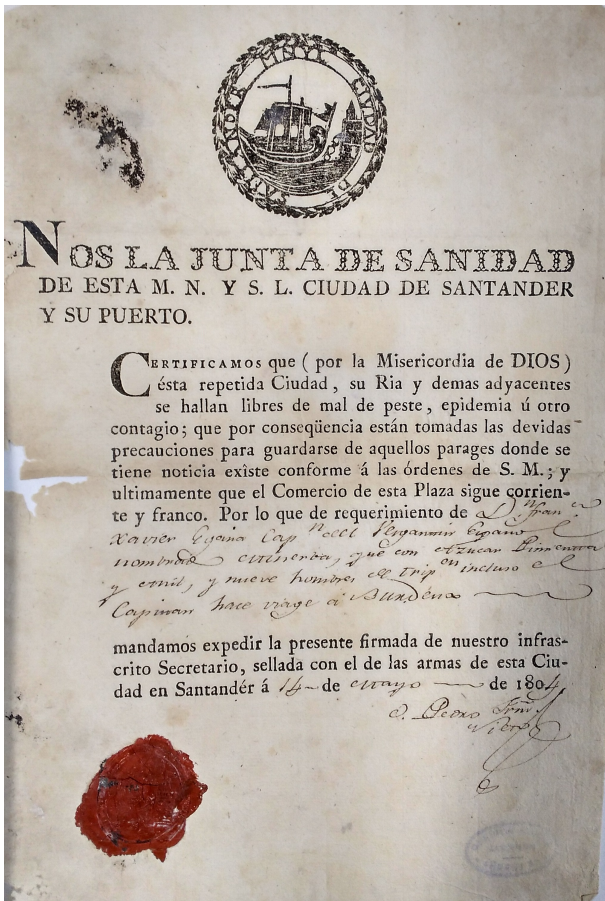 MNYL CIUDAD DE SANTANDER
NOS LA JUNTA DE SANIDAD
DE ESTA M. N. Y S. L. CIUDAD DE SANTANDER
Y SU PUERTO.
CERTIFICAMOS que ( por la Misericordia de DIOS )
ésta repetida Ciudad, su Ria y demas adyacentes
se hallan libres de mal de peste, epidemia ú otro
contagio; que por conseqüencia están tomadas las devidas
precauciones para guardarse de aquellos parages donde se
tiene noticia exîste conforme á las órdenes de S. M.; y
ultimamente que el Comercio de esta Plaza sigue corrien-
te y franco. Por lo que de requerimiento de Dn. Fran.co
Xavier Egaña Cap.n del Vergantin Español
nombrado Minerba, que con Azucar Pimienta
y Añil, y nueve hombres de trip.on incluso el
Capitan hace viage á Burdeos
mandamos expedir la presente firmada de nuestro infras-
crito Secretario, sellada con el de las armas de esta Ciu-
dad en Santandér á 14 de Mayo de 1804
D. Pedro